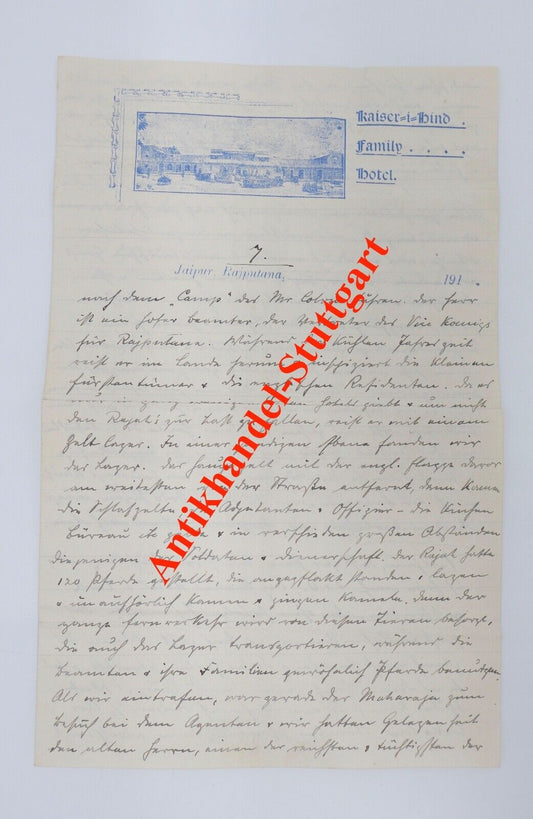 Kaiser-i-Hind .
Family . . . .
Hotel.
7.
Jaipur, Rajputana, 191
nach dem „Camp“ des Mr fuhren. Der Herr
ist ein hoher Beamter, der Vertreter des Vice Koenigs
für Rajputana. Während kühlen Jahreszeit
reist er im Lande herum, inspiziert die kleinen
Fürstentümer & die englischen Residenten. Da es
nur in ganz wenigen Hotels giebt & um nicht
den Rajah's zur Last zu fallen, reist er mit einem
Zelt Lager. In einer sandigen Ebene fanden wir
das Lager. Das Hauptzelt mit der engl. Flagge davor
am weitesten von der Strasse entfernt, dann kamen
die Schlafzelte, Adjutanten & Offizier- die Küchen
Bureau etc & in verschieden großen Abständen
diejenigen der Soldaten & Dienerschaft. Der Rajah hatte
120 Pferde gestellt, die angepflockt standen & lagen
& unaufhörlich kamen & gingen Kamele. Denn der
ganze Fernverkehr wird von diesen Tieren besorgt,
die auch das Lager transportieren, während die
Beamten & ihre Familien gewöhnlich Pferde benutzen.
Als wir eintrafen, war gerade der Maharaja zum
Besuch bei dem Agenten & wir hatten Gelegenheit
den alten Herrn, einen der reichsten & tüchtigsten der
Antikhandel-Stuttgart